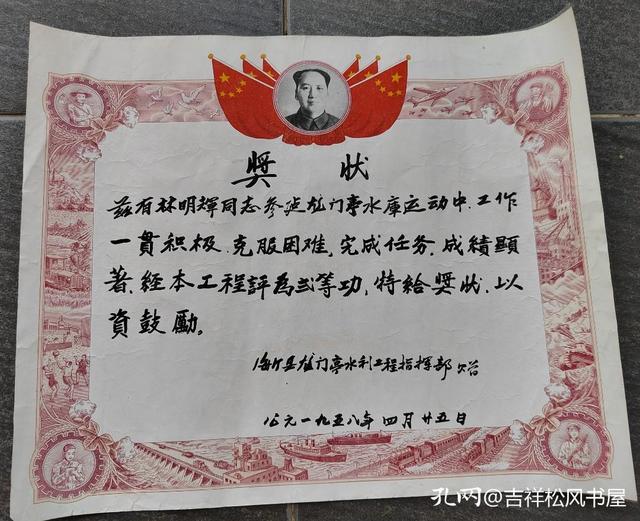 奬状
兹有林明輝同志参加龙门亭水庫运动中.工作
一貫积极.克服困难.完成任务.成績顯
著.経本工程評為弍等功.特給奬狀.以
資鼓勵。
海丰县龙门亭水利工程指揮部
公元一九五八年四月廿五日
孔网@吉祥松风书屋